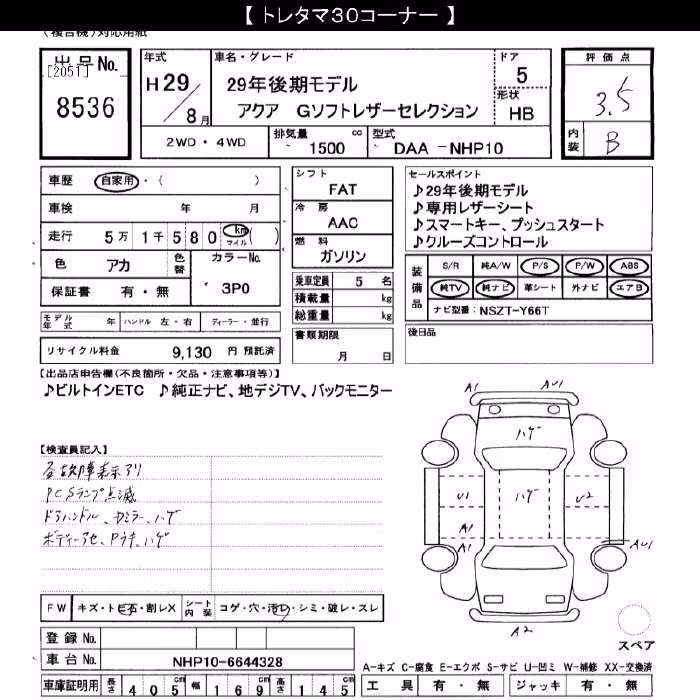 【 トレタマ30コーナー 】
(複合機)対応用紙
出品No.
[2051]
8536
年式
H29/8月
車名・グレード
29年後期モデル
アクア Gソフトレザーセレクション
ドア
5
形状
HB
2WD・4WD
排気量
1500 cc
型式
DAA －NHP10
評価点
3.5
内装
B
車歴 自家用・( )
車検 年 月
走行 5万1千580 km マイル ( )
色 アカ
色替
カラーNo.
3P0
保証書 有・無
シフト
FAT
冷房
AAC
燃料
ガソリン
乗車定員 5 名
積載量 kg
総重量 kg
セールスポイント
♪29年後期モデル
♪専用レザーシート
♪スマートキー、プッシュスタート
♪クルーズコントロール
装備品
S/R 純A/W P/S P/W ABS
純TV 純ナビ 革シート 外ナビ エアB
ナビ型番: NSZT-Y66T
モデル年式 年 ハンドル 左・右 ディーラー・並行
リサイクル料金 9,130 円 預託済
書類期限
月 日
後日品
【出品店申告欄(不良箇所・欠品・注意事項等)】
♪ビルトインETC ♪純正ナビ、地デジTV、バックモニター
【検査員記入】
故障表示アリ
PCSランプ点滅
ドアハンドル、Dミラー、ハゲ
ボディーアセ、Pウキ、ハゲ
A1 AU1
ハゲ
U1 ハゲ U2
A1
A1 AU1
A2
スペア
FW キズ・トビ石・割レX
シート内装 コゲ・穴・汚レ・シミ・破レ・スレ
登録No.
車台No. NHP10-6644328
車庫証明用 長さ 405cm 幅 169cm 高さ 145cm
A-キズ C-腐食 E-エクボ S-サビ U-凹ミ W-補修 XX-交換済
工具 有・無 ジャッキ 有・無